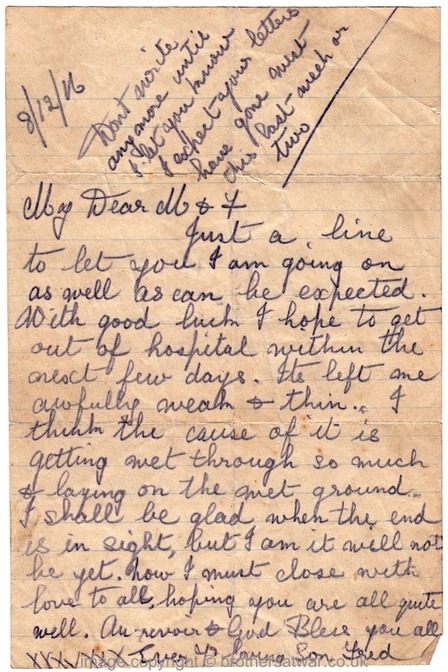 8/12/16
Dont write
anymore until
I let you know
I expect your letters
have gone west
this last week or
two
My Dear M & F
Just a line
to let you I am going on
as well as can be expected.
With good luck I hope to get
out of hospital within the
next few days. Its left me
awfully weak & thin. I
think the cause of it is
getting wet through so much
& laying on the wet ground.
I shall be glad when the end
is in sight, but I am it will not
be yet. now I must close with
love to all, hoping you are all quite
well. Au revoir & God Bless you all
Ever Yr loving Son Fred
image copyright © brothersatwar.co.uk